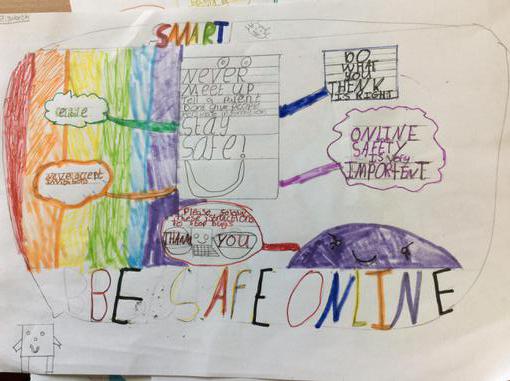 SMART
NEVER
MEET UP
Tell a parent
Dont give people
Stay
safe!
DO
WHAT
YOU
THINK
IS RIGHT
ONLINE
SAFETY
IS very
IMPORTENT
never accept
Please follow
these instructions
to stop bugs
THANK YOU
BE SAFE ONLINE